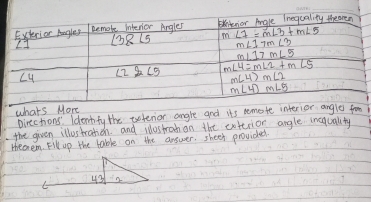 Exterior Angles Remote Interior Angles Exterior Angle Inequality theorem
∠1 ∠3 & ∠5 m ∠1 = m∠3 + m∠5
m∠1 > m ∠3
m∠1 > m∠5
∠4 ∠2 & ∠5 m∠4 = m∠2 + m ∠5
m∠4 > m∠2
m∠4 > m∠5
what's More
Directions: Identify the exterior angle and its remote interior angles from
the given illustration. and illustration the exterior angle inequality
theorem. Fill up the table on the answer sheet provided.
4 3 2